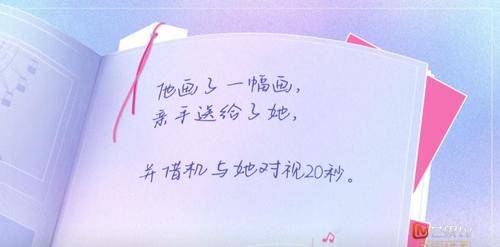 他画了一幅画，
亲手送给了她，
并借机与她对视20秒。
芒果tv